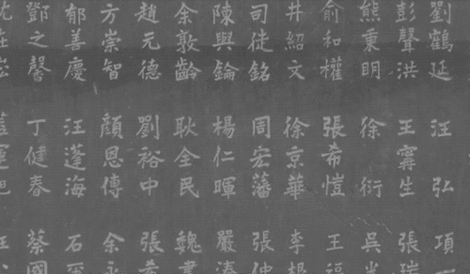 劉鶴延 汪弘 項
彭聲洪 王寗生 張瑞
熊秉明 徐衍 吳
俞和權 張希愷 王福
井紹文 徐京華 李根
司徒銘 周宏藩 張仲
陳輿錀 楊仁暉 嚴濤
余敦齡 耿全民 魏書
趙元德 劉裕中 張希
方崇智 顏恩傳 余永
郁善慶 汪蓬海 石
鄧之馨 丁健春 蔡國